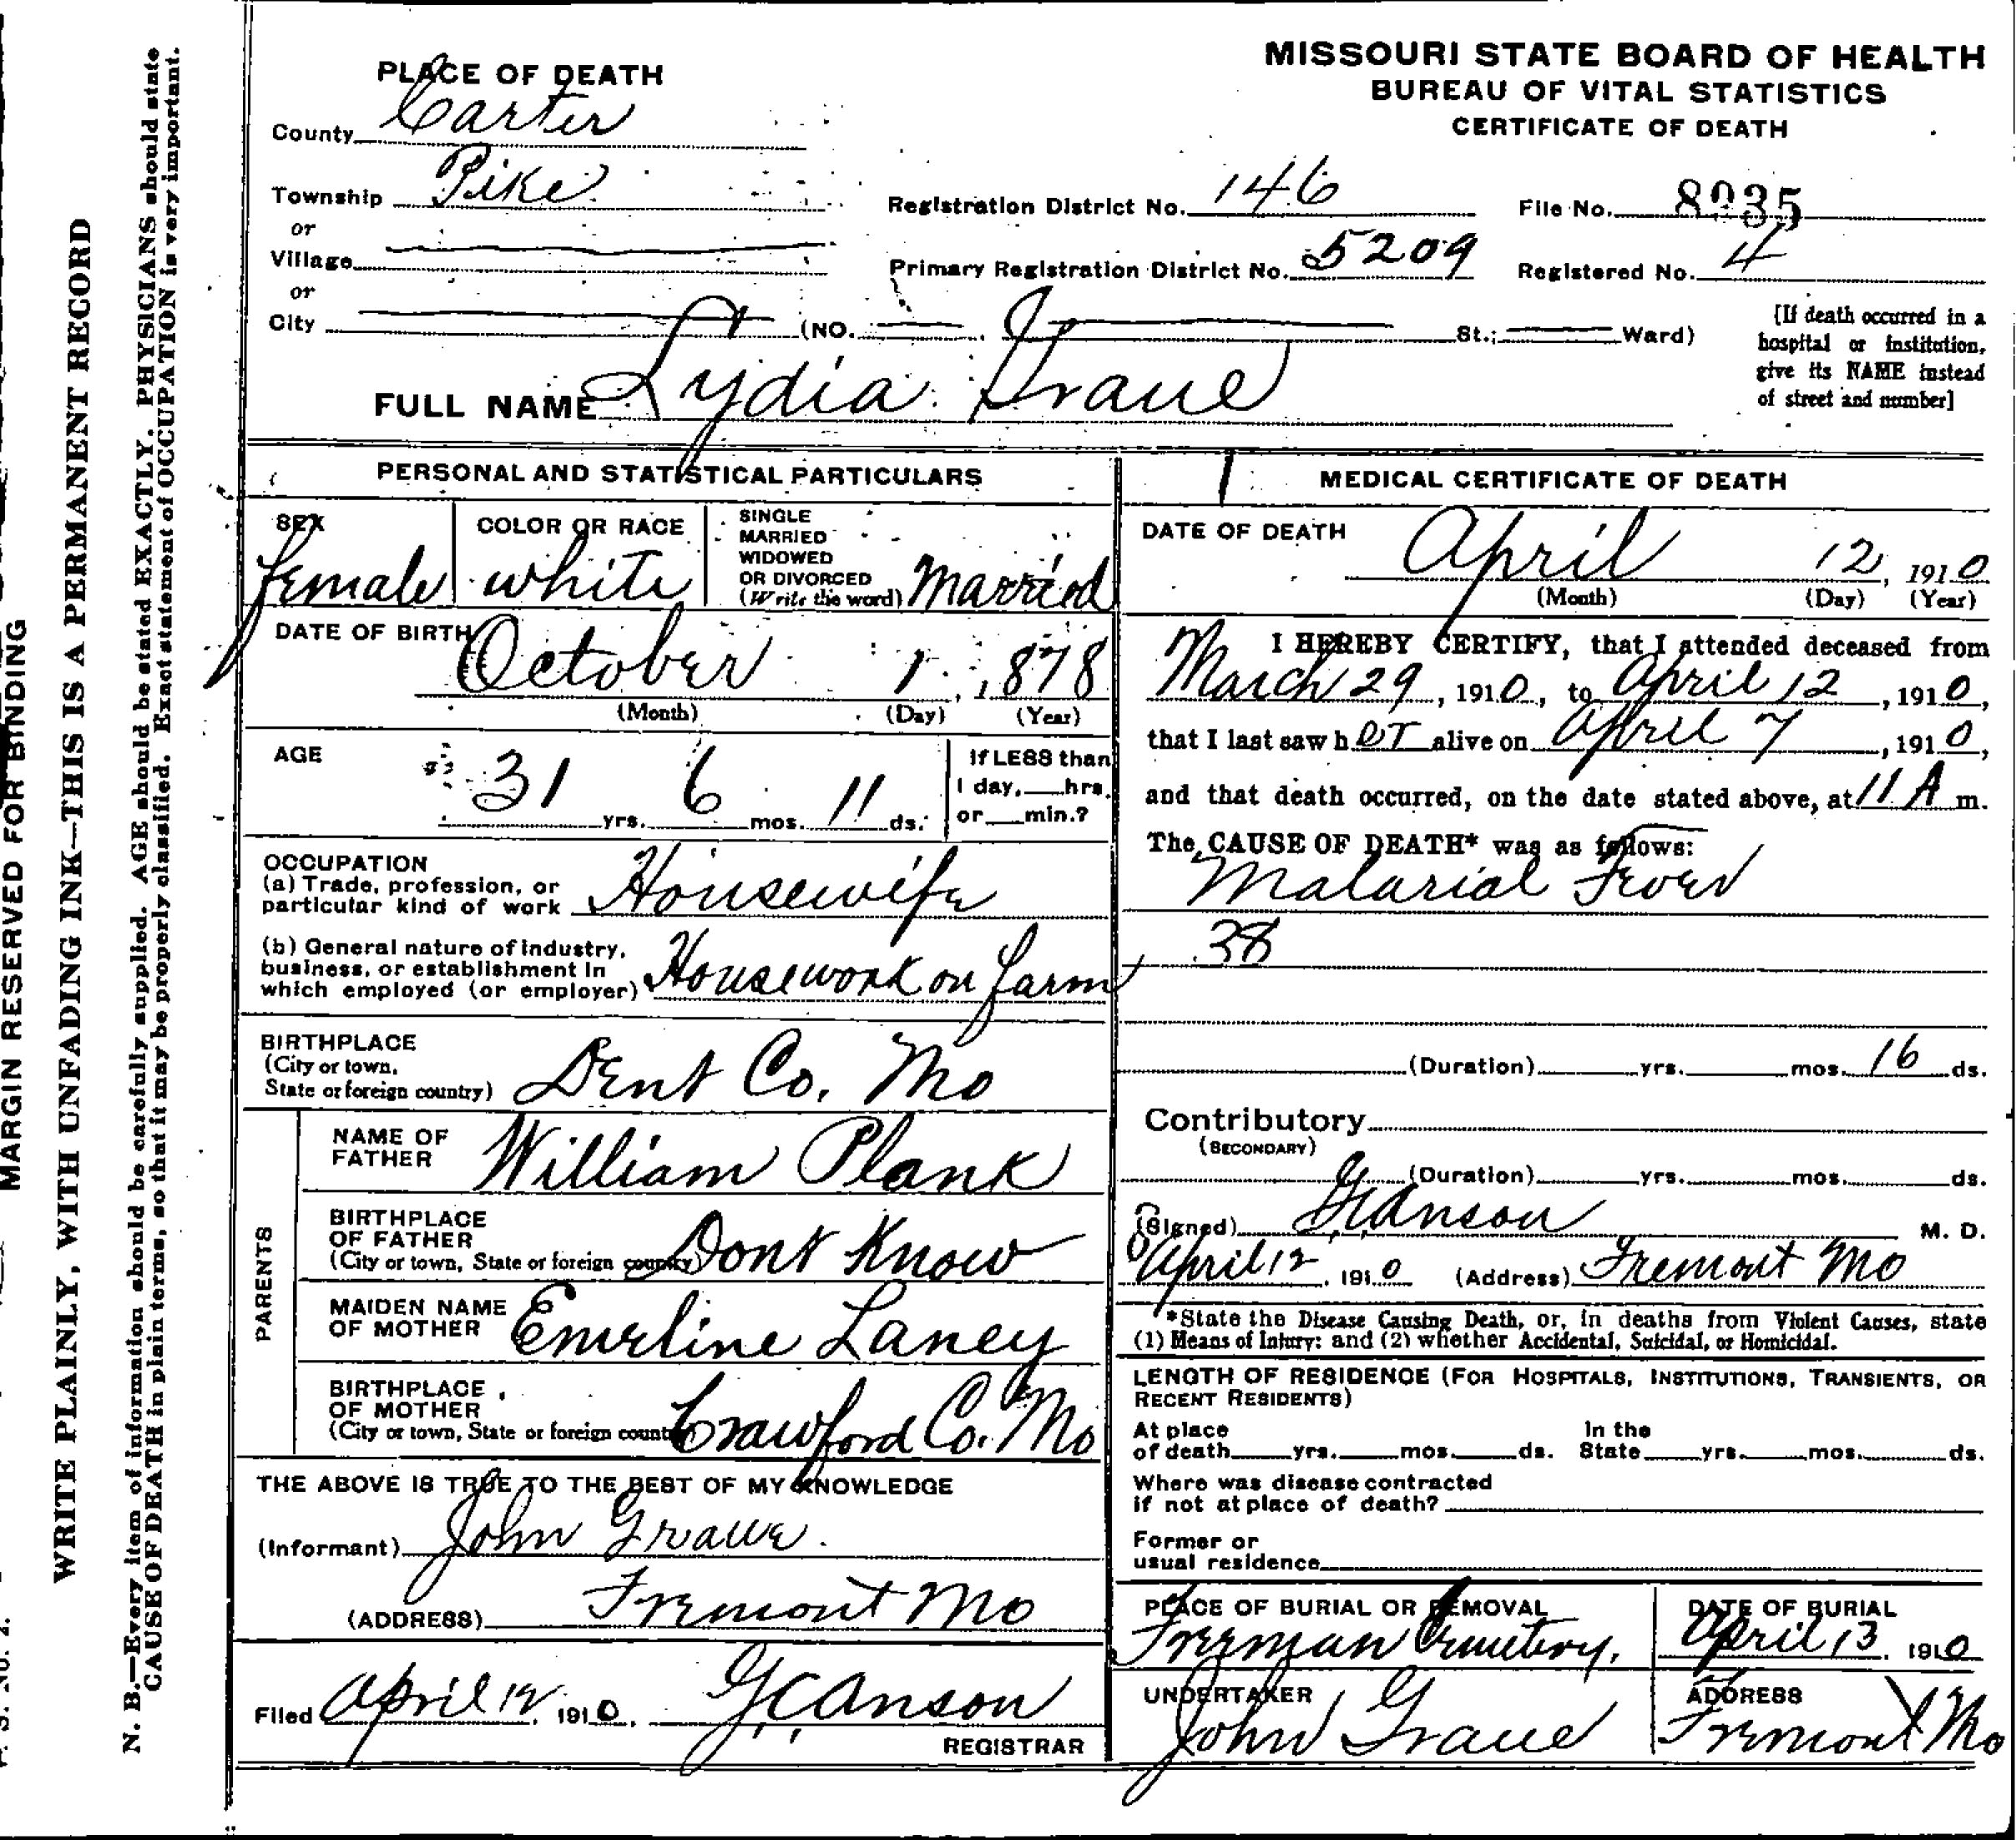 MISSOURI STATE BOARD OF HEALTH
BUREAU OF VITAL STATISTICS
CERTIFICATE OF DEATH
PLACE OF DEATH
County Carter
Township Pike
or
Village
or
City (NO. St.; Ward)
Registration District No. 146
File No. 8035
Primary Registration District No. 5209
Registered No. 4
[If death occurred in a
hospital or institution,
give its NAME instead
of street and number]
FULL NAME Lydia Graue
PERSONAL AND STATISTICAL PARTICULARS
SEX
female
COLOR OR RACE
white
SINGLE
MARRIED
WIDOWED
OR DIVORCED
(Write the word) Married
DATE OF BIRTH
October 1, 1878
(Month) (Day) (Year)
AGE
31 yrs. 6 mos. 11 ds.
If LESS than
1 day, hrs.
or min.?
OCCUPATION
(a) Trade, profession, or
particular kind of work Housewife
(b) General nature of industry,
business, or establishment in
which employed (or employer) Housework on farm
BIRTHPLACE
(City or town,
State or foreign country) Dent Co, Mo
PARENTS
NAME OF
FATHER William Plank
BIRTHPLACE
OF FATHER
(City or town, State or foreign country) Dont Know
MAIDEN NAME
OF MOTHER Emerline Laney
BIRTHPLACE
OF MOTHER
(City or town, State or foreign country) Crawford Co. Mo
THE ABOVE IS TRUE TO THE BEST OF MY KNOWLEDGE
(Informant) John Graue.
(ADDRESS) Fremont Mo
Filed April 12, 1910, G.C. Anson
REGISTRAR
MEDICAL CERTIFICATE OF DEATH
DATE OF DEATH
April 12, 1910
(Month) (Day) (Year)
I HEREBY CERTIFY, that I attended deceased from
March 29, 1910, to April 12, 1910,
that I last saw her alive on April 7, 1910,
and that death occurred, on the date stated above, at 11 A m.
The CAUSE OF DEATH* was as follows:
Malarial Fever
38
(Duration) yrs. mos. 16 ds.
Contributory
(SECONDARY)
(Duration) yrs. mos. ds.
(Signed) G.C. Anson M. D.
April 12, 1910 (Address) Fremont Mo
*State the Disease Causing Death, or, in deaths from Violent Causes, state
(1) Means of Injury; and (2) whether Accidental, Suicidal, or Homicidal.
LENGTH OF RESIDENCE (FOR HOSPITALS, INSTITUTIONS, TRANSIENTS, OR
RECENT RESIDENTS)
At place
of death yrs. mos. ds.
In the
State yrs. mos. ds.
Where was disease contracted
if not at place of death?
Former or
usual residence
PLACE OF BURIAL OR REMOVAL
Freeman Cemetery.
DATE OF BURIAL
April 13, 1910
UNDERTAKER
John Graue
ADDRESS
Fremont Mo
MARGIN RESERVED FOR BINDING
WRITE PLAINLY, WITH UNFADING INK—THIS IS A PERMANENT RECORD
N. B.—Every item of information should be carefully supplied. AGE should be stated EXACTLY. PHYSICIANS should state
CAUSE OF DEATH in plain terms, so that it may be properly classified. Exact statement of OCCUPATION is very important.